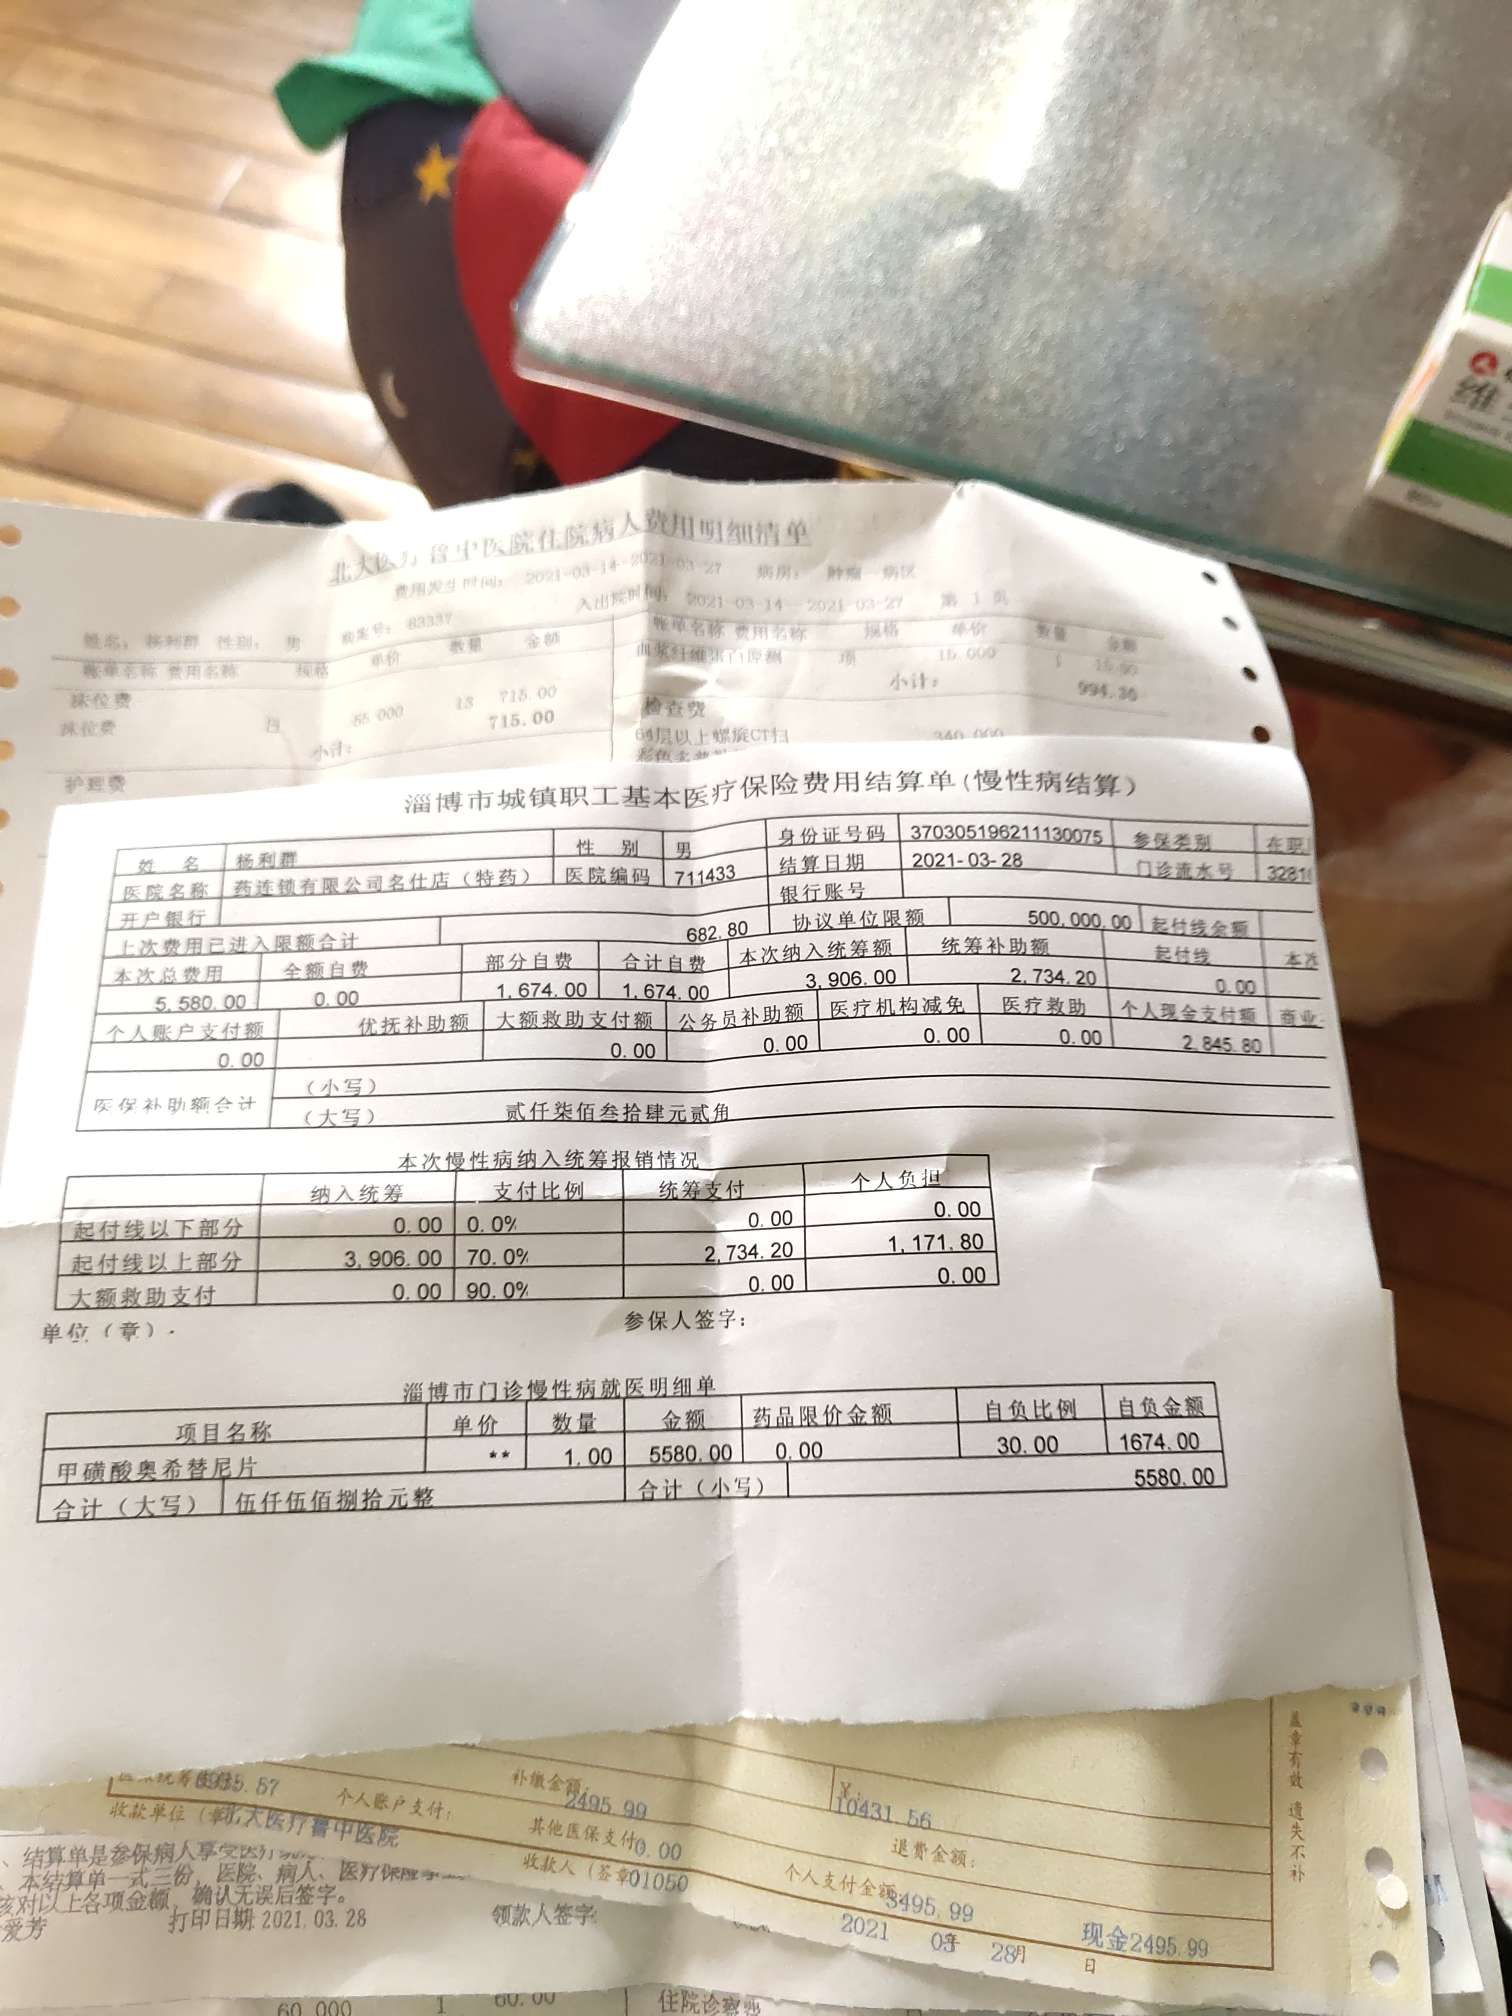 维
北大医疗鲁中医院住院病人费用明细清单
费用发生时间: 2021-03-14-2021-03-27 病房: 肿瘤一病区
入出院时间: 2021-03-14--2021-03-27 第 1 页
姓名: 杨利群 性别: 男 病案号: 83337
账单名称 费用名称 规格 单价 数量 金额 账单名称 费用名称 规格 单价 数量 金额
床位费 项 15.000 1
床位费 日 55.000 13 715.00 小计: 994.36
小计: 715.00 检查费
护理费 64层以上螺旋CT扫 340.000
淄博市城镇职工基本医疗保险费用结算单(慢性病结算)
姓 名 杨利群 性 别 男 身份证号码 370305196211130075 参保类别 在职
医院名称 药连锁有限公司名仕店(特药) 医院编码 711433 结算日期 2021-03-28 门诊流水号
开户银行 银行账号
上次费用已进入限额合计 682.80 协议单位限额 500,000.00 起付线金额
本次总费用 全额自费 部分自费 合计自费 本次纳入统筹额 统筹补助额 起付线 本次
5,580.00 0.00 1,674.00 1,674.00 3,906.00 2,734.20 0.00
个人账户支付额 优抚补助额 大额救助支付额 公务员补助额 医疗机构减免 医疗救助 个人现金支付额 商业
0.00 0.00 0.00 0.00 0.00 2,845.80
医保补助额合计 (小写)
(大写) 贰仟柒佰叁拾肆元贰角
本次慢性病纳入统筹报销情况
纳入统筹 支付比例 统筹支付 个人负担
起付线以下部分 0.00 0.0% 0.00 0.00
起付线以上部分 3,906.00 70.0% 2,734.20 1,171.80
大额救助支付 0.00 90.0% 0.00 0.00
单位(章). 参保人签字:
淄博市门诊慢性病就医明细单
项目名称 单价 数量 金额 药品限价金额 自负比例 自负金额
甲磺酸奥希替尼片 ** 1.00 5580.00 0.00 30.00 1674.00
合计(大写) 伍仟伍佰捌拾元整 合计(小写) 5580.00
补缴金额: 2495.99 ¥: 10431.56
个人账户支付: 其他医保支付 0.00 退费金额:
收款单位(章 北大医疗鲁中医院 收款人(签章 01050 个人支付金额 3495.99
2021 年 03 月 28 日 现金2495.99
盖章有效 遗失不补
、结算单是参保病人享受医疗
、本结算单一式三份, 医院、病人、医疗保险
核对以上各项金额, 确认无误后签字。
爱芳 打印日期 2021.03.28 领款人签字
60.000 1 60.00 住院诊察费